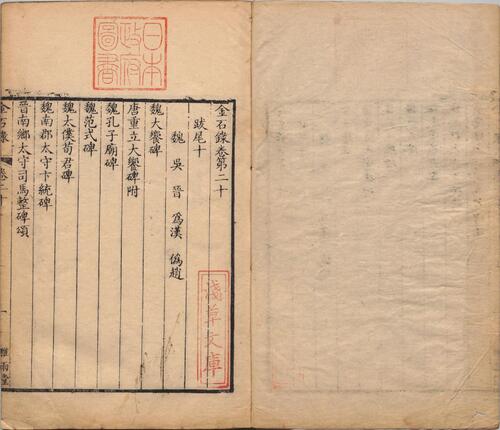 日本
政府
圖書
金石錄卷第二十
跋尾十
魏 吳 晉 僞漢 僞趙
魏大饗碑
唐重立大饗碑附
魏孔子廟碑
魏范式碑
魏太僕荀君碑
魏南郡太守卞統碑
晉南鄉太守司馬整碑頌
金石錄 卷二十
一 雅雨堂
淺草文庫